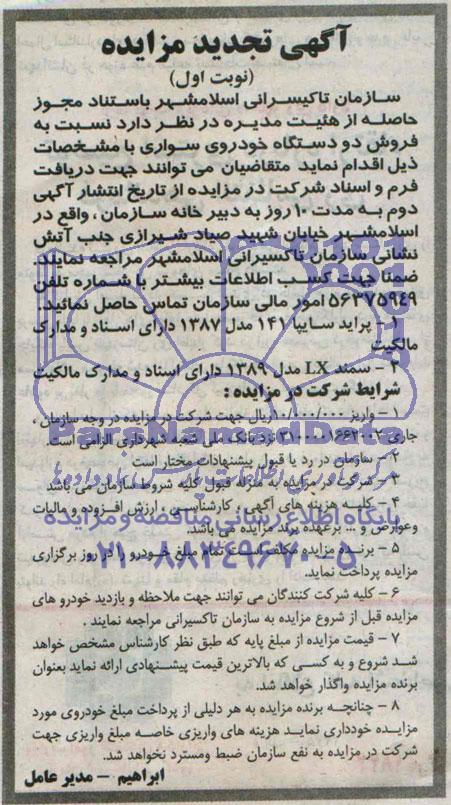 آگهی تجدید مزایده
(نوبت اول)
سازمان تاکیسرانی اسلامشهر باستناد مجوز
حاصله از هئیت مدیره در نظر دارد نسبت به
فروش دو دستگاه خودروی سواری با مشخصات
ذیل اقدام نماید متقاضیان می توانند جهت دریافت
فرم و اسناد شرکت در مزایده از تاریخ انتشار آگهی
دوم به مدت ۱۰ روز به دبیر خانه سازمان ، واقع در
اسلامشهر خیابان شهید صیاد شیرازی جنب آتش
نشانی سازمان تاکسیرانی اسلامشهر مراجعه نمایند.
ضمنا جهت کسب اطلاعات بیشتر با شماره تلفن
۵۶۳۷۵۹۴۹ امور مالی سازمان تماس حاصل نمائید.
۱- پراید سایپا ۱۴۱ مدل ۱۳۸۷ دارای اسناد و مدارک
مالکیت
۲ - سمند LX مدل ۱۳۸۹ دارای اسناد و مدارک مالکیت
شرایط شرکت در مزایده :
۱ - واریز ۱۰/۰۰۰/۰۰۰ ریال جهت شرکت در مزایده در وجه سازمان ،
جاری نزد بانک ملی شعبه شهرداری الزامی است.
۲ - سازمان در رد یا قبول پیشنهادات مختار است
۳ - شرکت در مزایده به منزله قبول کلیه شروط سازمان می باشد
۴ - کلیه هزینه های آگهی ، کارشناسی ، ارزش افزوده و مالیات
وعوارض و ... برعهده برنده مزایده می باشد.
۵ - برنده مزایده مکلف است تمام مبلغ خودرو را در روز برگزاری
مزایده پرداخت نماید.
۶ - کلیه شرکت کنندگان می توانند جهت ملاحظه و بازدید خودرو های
مزایده قبل از شروع مزایده به سازمان تاکسیرانی مراجعه نمایند .
۷ - قیمت مزایده از مبلغ پایه که طبق نظر کارشناس مشخص خواهد
شد شروع و به کسی که بالاترین قیمت پیشنهادی ارائه نماید بعنوان
برنده مزایده واگذار خواهد شد.
۸ - چنانچه برنده مزایده به هر دلیلی از پرداخت مبلغ خودروی مورد
مزایده خودداری نماید هزینه های واریزی خاصه مبلغ واریزی جهت
شرکت در مزایده به نفع سازمان ضبط ومسترد نخواهد شد.
ابراهیم - مدیر عامل
ParsNamadData
پایگاه اطلاع رسانی مناقصه و مزایده
۰۲۱-۸۸۳۴۹۶۷۰-۵